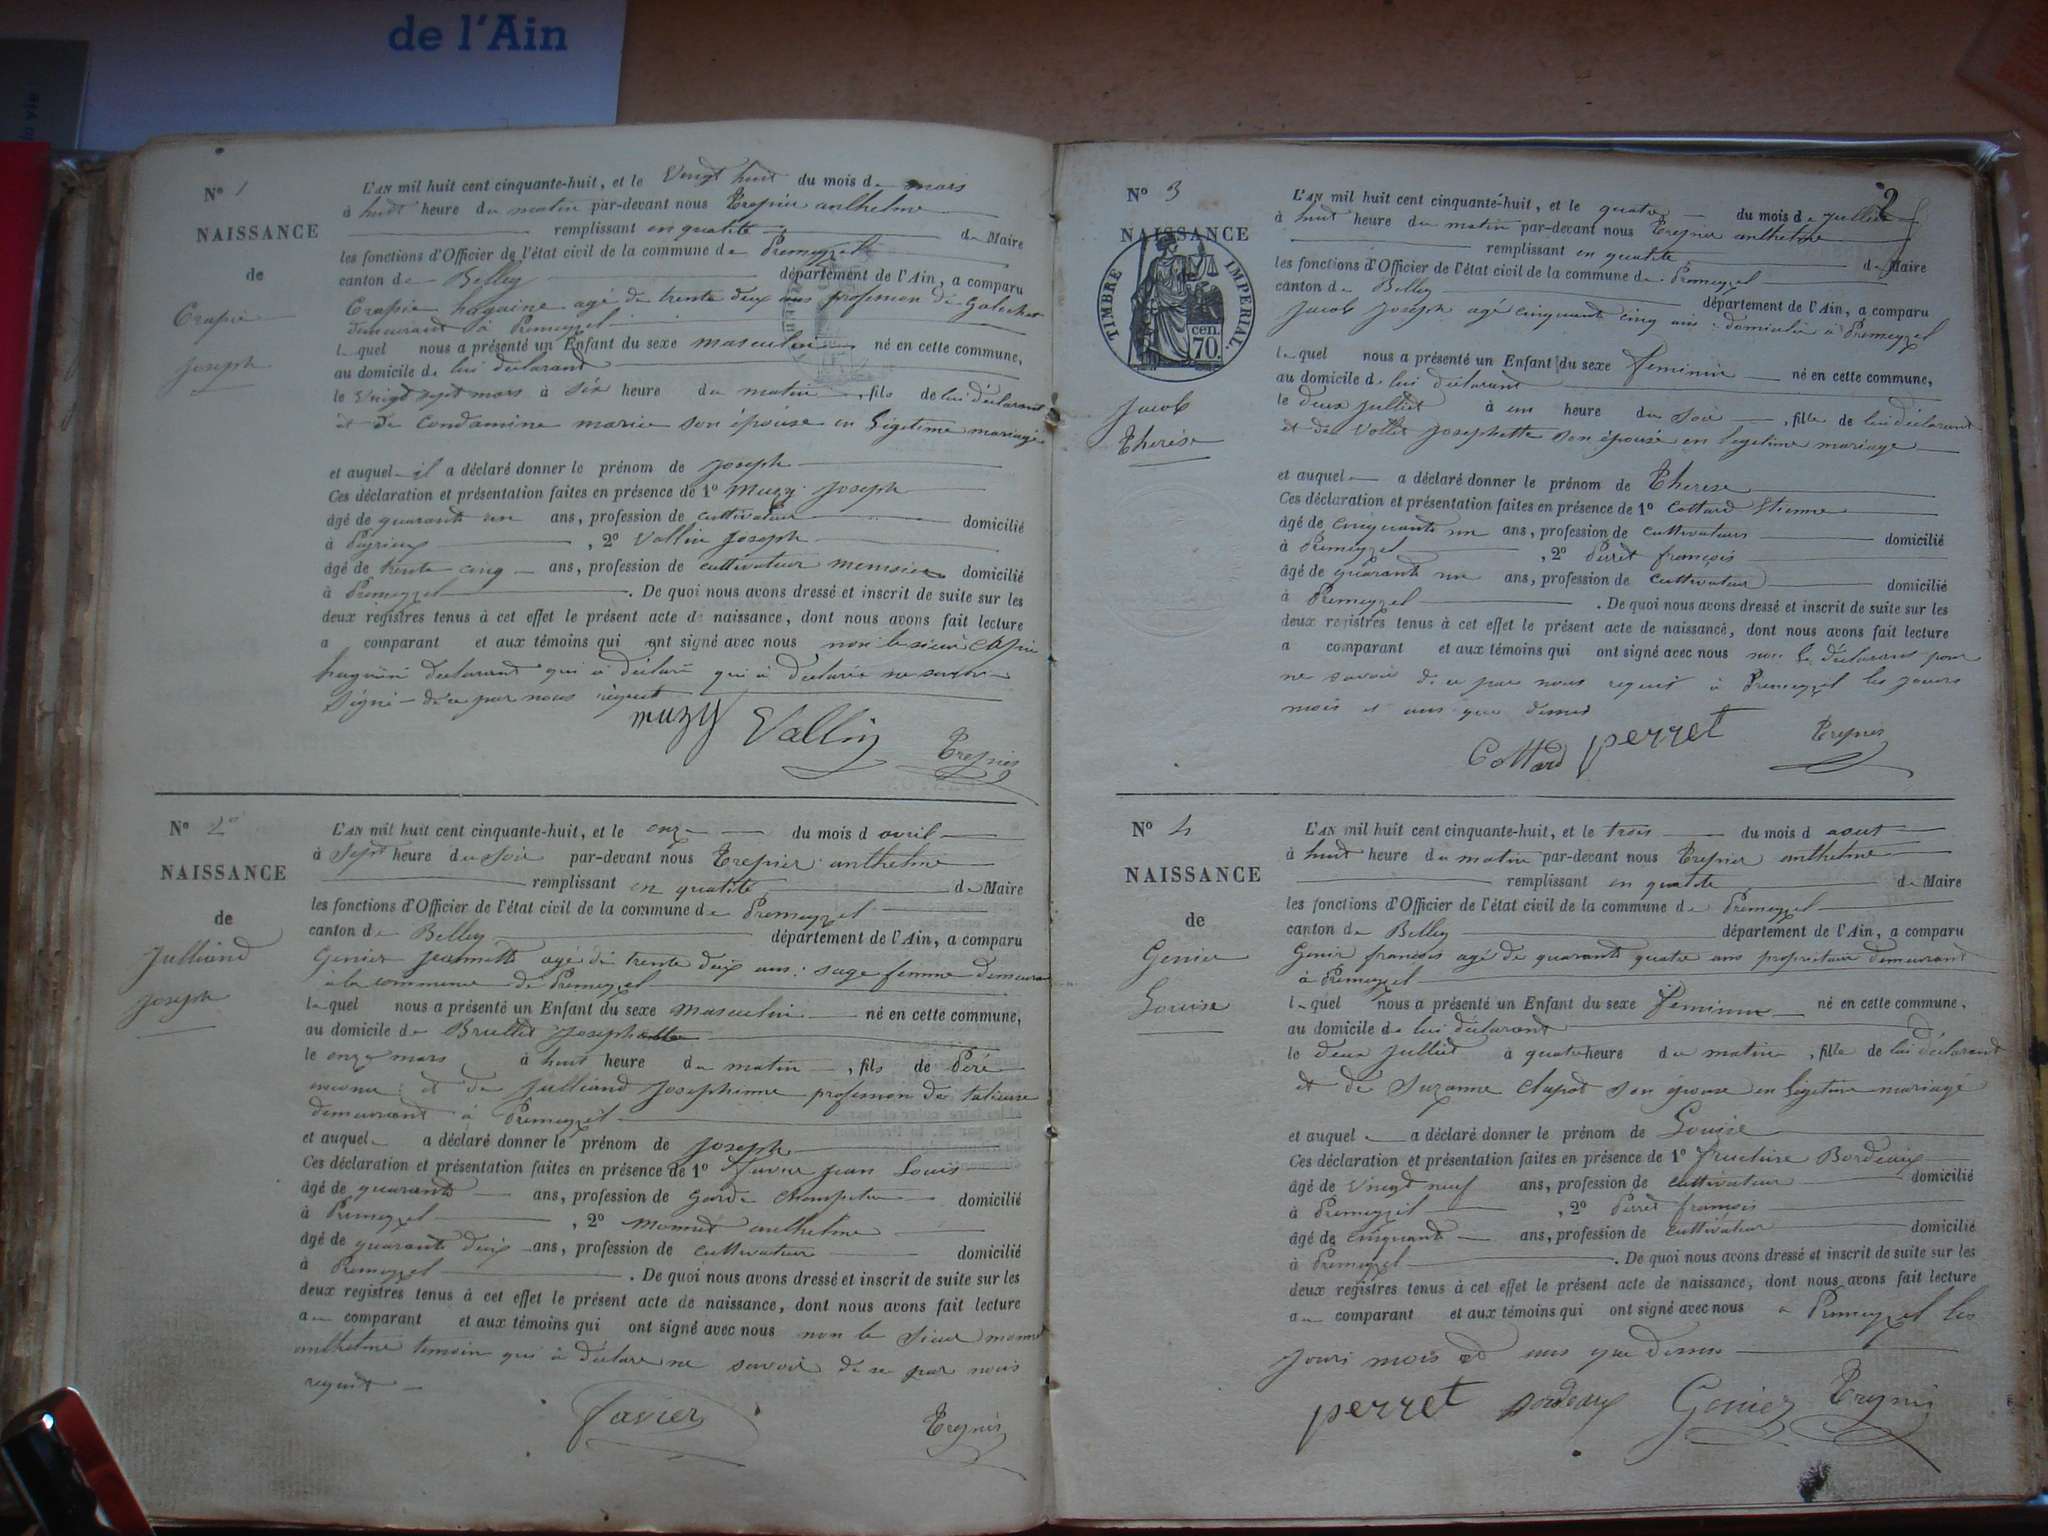 de l'Ain
N° 1
NAISSANCE
de
Crapie
Joseph
L'AN mil huit cent cinquante-huit, et le Vingt huit du mois de mars
à huit heure du matin par-devant nous Trepier anthelme
remplissant en qualité de Maire
les fonctions d'Officier de l'état civil de la commune de Premeyzel
canton de Belley département de l'Ain, a comparu
Crapie agé de trente deux ans profession de
demeurant à Premeyzel
lequel nous a présenté un Enfant du sexe masculin né en cette commune,
au domicile de lui déclarant
le Vingt sept mars à six heure du matin, fils de lui déclarant
et de Condamine marie son épouse en légitime mariage
et auquel il a déclaré donner le prénom de Joseph
Ces déclaration et présentation faites en présence de 1° Muzy Joseph
âgé de quarante un ans, profession de cultivateur domicilié
à Peyrieux, 2° Vallin Joseph
âgé de trente cinq ans, profession de cultivateur domicilié
à Premeyzel. De quoi nous avons dressé et inscrit de suite sur les
deux registres tenus à cet effet le présent acte de naissance, dont nous avons fait lecture
a comparant et aux témoins qui ont signé avec nous non le sieur
déclarant qui à déclaré qui à déclaré ne savoir
signé de ce par nous requit
muzy Vallin Trepier
N° 2
NAISSANCE
de
Julliand
Joseph
L'AN mil huit cent cinquante-huit, et le onze du mois d avril
à Sept heure du Soir par-devant nous Trepier anthelme
remplissant en qualité de Maire
les fonctions d'Officier de l'état civil de la commune de Premeyzel
canton de Belley département de l'Ain, a comparu
Genier jeannette agé de trente deux ans sage femme demeurant
à la commune de Premeyzel
lequel nous a présenté un Enfant du sexe masculin né en cette commune,
au domicile de
le onze mars à huit heure du matin, fils de Père
inconnu et de Julliand Josephinne profession de tailleuse
demeurant à Premeyzel
et auquel a déclaré donner le prénom de Joseph
Ces déclaration et présentation faites en présence de 1° favier jean Louis
âgé de quarante ans, profession de garde champetre domicilié
à Premeyzel, 2° Monnet anthelme
âgé de quarante deux ans, profession de cultivateur domicilié
à Premeyzel. De quoi nous avons dressé et inscrit de suite sur les
deux registres tenus à cet effet le présent acte de naissance, dont nous avons fait lecture
au comparant et aux témoins qui ont signé avec nous non le Sieur monnet
anthelme temoin qui à déclare ne savoir de ce par nous
requit
favier Trepier
N° 3
2
NAISSANCE
TIMBRE IMPERIAL.
70 cen.
Jacob
Therése
L'AN mil huit cent cinquante-huit, et le quatre du mois de julliet
à huit heure du matin par-devant nous Trepier anthelme
remplissant en qualité de Maire
les fonctions d'Officier de l'état civil de la commune de Premeyzel
canton de Belley département de l'Ain, a comparu
Jacob Joseph agé cinquante cinq ans domicilié à Premeyzel
lequel nous a présenté un Enfant du sexe feminin né en cette commune,
au domicile de lui déclarant
le deux julliet à un heure du soir, fille de lui déclarant
et de Vollet Josephette son épouse en legitime mariage
et auquel a déclaré donner le prénom de Therese
Ces déclaration et présentation faites en présence de 1° Cottard Etienne
âgé de cinquante un ans, profession de cultivateur domicilié
à Premeyzel, 2° Perret françois
âgé de quarante un ans, profession de cultivateur domicilié
à Premeyzel. De quoi nous avons dressé et inscrit de suite sur les
deux registres tenus à cet effet le présent acte de naissance, dont nous avons fait lecture
a comparant et aux témoins qui ont signé avec nous non le déclarant pour
ne savoir de ce par nous requit à Premeyzel les jours
mois et ans que dessus
Cottard perret Trepier
N° 4
NAISSANCE
de
Genier
Louise
L'AN mil huit cent cinquante-huit, et le trois du mois d aout
à huit heure du matin par-devant nous Trepier anthelme
remplissant en qualité de Maire
les fonctions d'Officier de l'état civil de la commune de Premeyzel
canton de Belley département de l'Ain, a comparu
Genier francois agé de quarante quatre ans propriétaire demeurant
à Premeyzel
lequel nous a présenté un Enfant du sexe feminin né en cette commune,
au domicile de lui déclarant
le deux julliet à quatre heure du matin, fille de lui déclarant
et de Suzanne Chapot son épouse en légitime mariage
et auquel a déclaré donner le prénom de Louise
Ces déclaration et présentation faites en présence de 1° Bordeaux
âgé de Vingt neuf ans, profession de cultivateur domicilié
à Premeyzel, 2° Perret francois
âgé de cinquante ans, profession de cultivateur domicilié
à Premeyzel. De quoi nous avons dressé et inscrit de suite sur les
deux registres tenus à cet effet le présent acte de naissance, dont nous avons fait lecture
au comparant et aux témoins qui ont signé avec nous a Premeyzel les
jours mois et ans que dessus
perret Bordeaux Genier Trepier